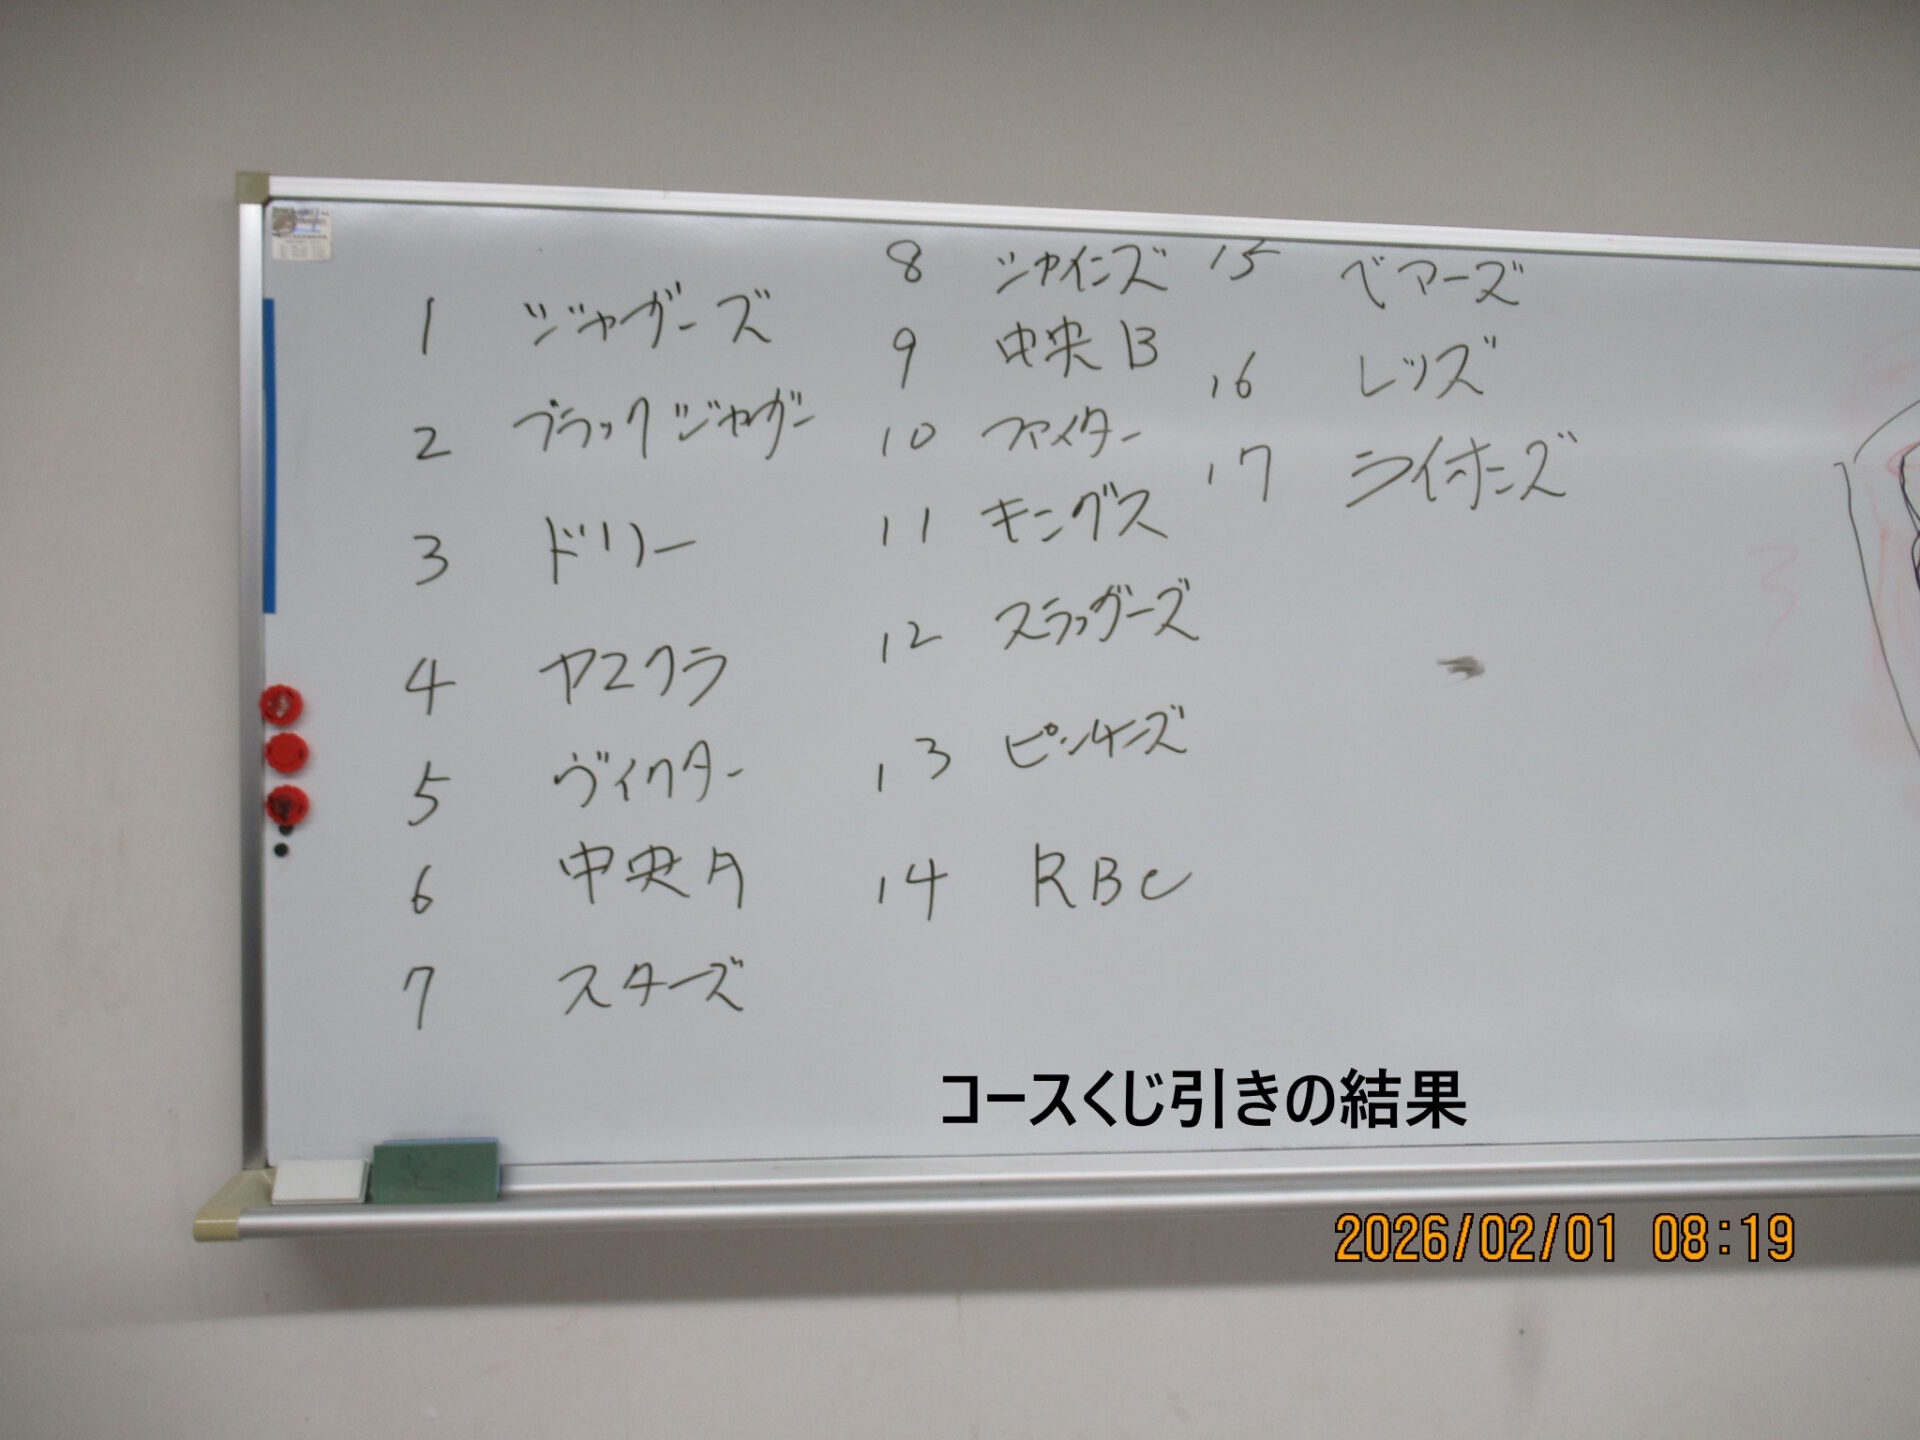 1 ジャガーズ
2 ブラックジャガー
3 ドリー
4 ヤマクラ
5 ヴィクター
6 中央A
7 スターズ
8 シャインズ
9 中央B
10 ファイター
11 キングス
12 スラッガーズ
13 ピンキーズ
14 RBC
15 ベアーズ
16 レッズ
17 ライオンズ
コースくじ引きの結果
2026/02/01 08:19